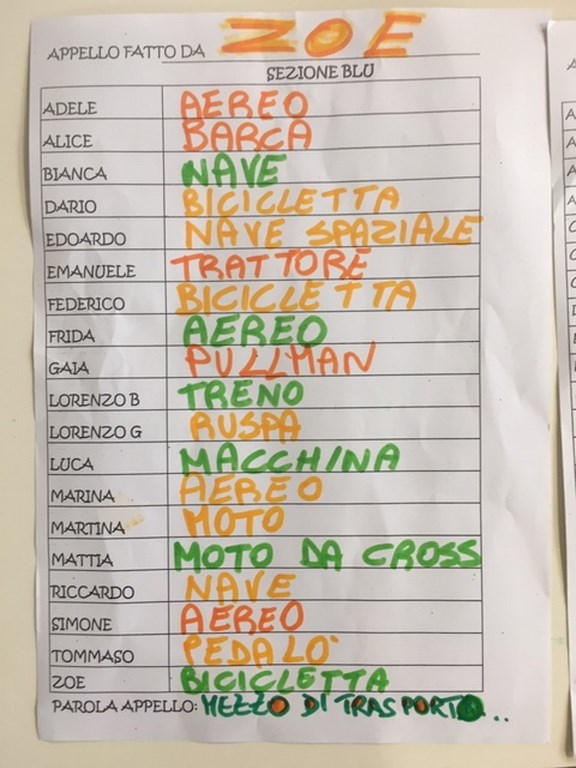 APPELLO FATTO DA ZOE
SEZIONE BLU
ADELE AEREO
ALICE BARCA
BIANCA NAVE
DARIO BICICLETTA
EDOARDO NAVE SPAZIALE
EMANUELE TRATTORE
FEDERICO BICICLETTA
FRIDA AEREO
GAIA PULLMAN
LORENZO B TRENO
LORENZO G RUSPA
LUCA MACCHINA
MARINA AEREO
MARTINA MOTO
MATTIA MOTO DA CROSS
RICCARDO NAVE
SIMONE AEREO
TOMMASO PEDALO'
ZOE BICICLETTA
PAROLA APPELLO: MEZZO DI TRASPORTO...